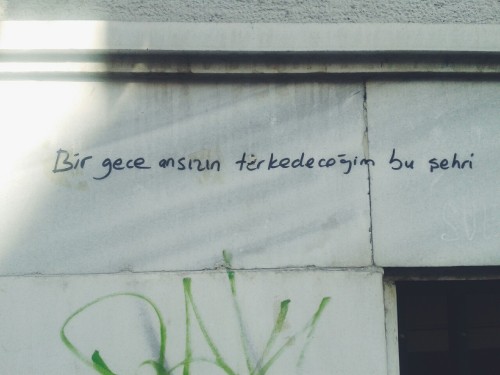 Bir gece ansızın terkedeceğim bu şehri